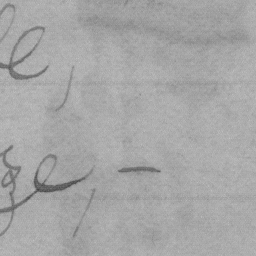 le,
ge, –